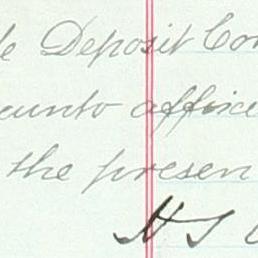 le Deposit Con
eunto affixe
the presen
H S